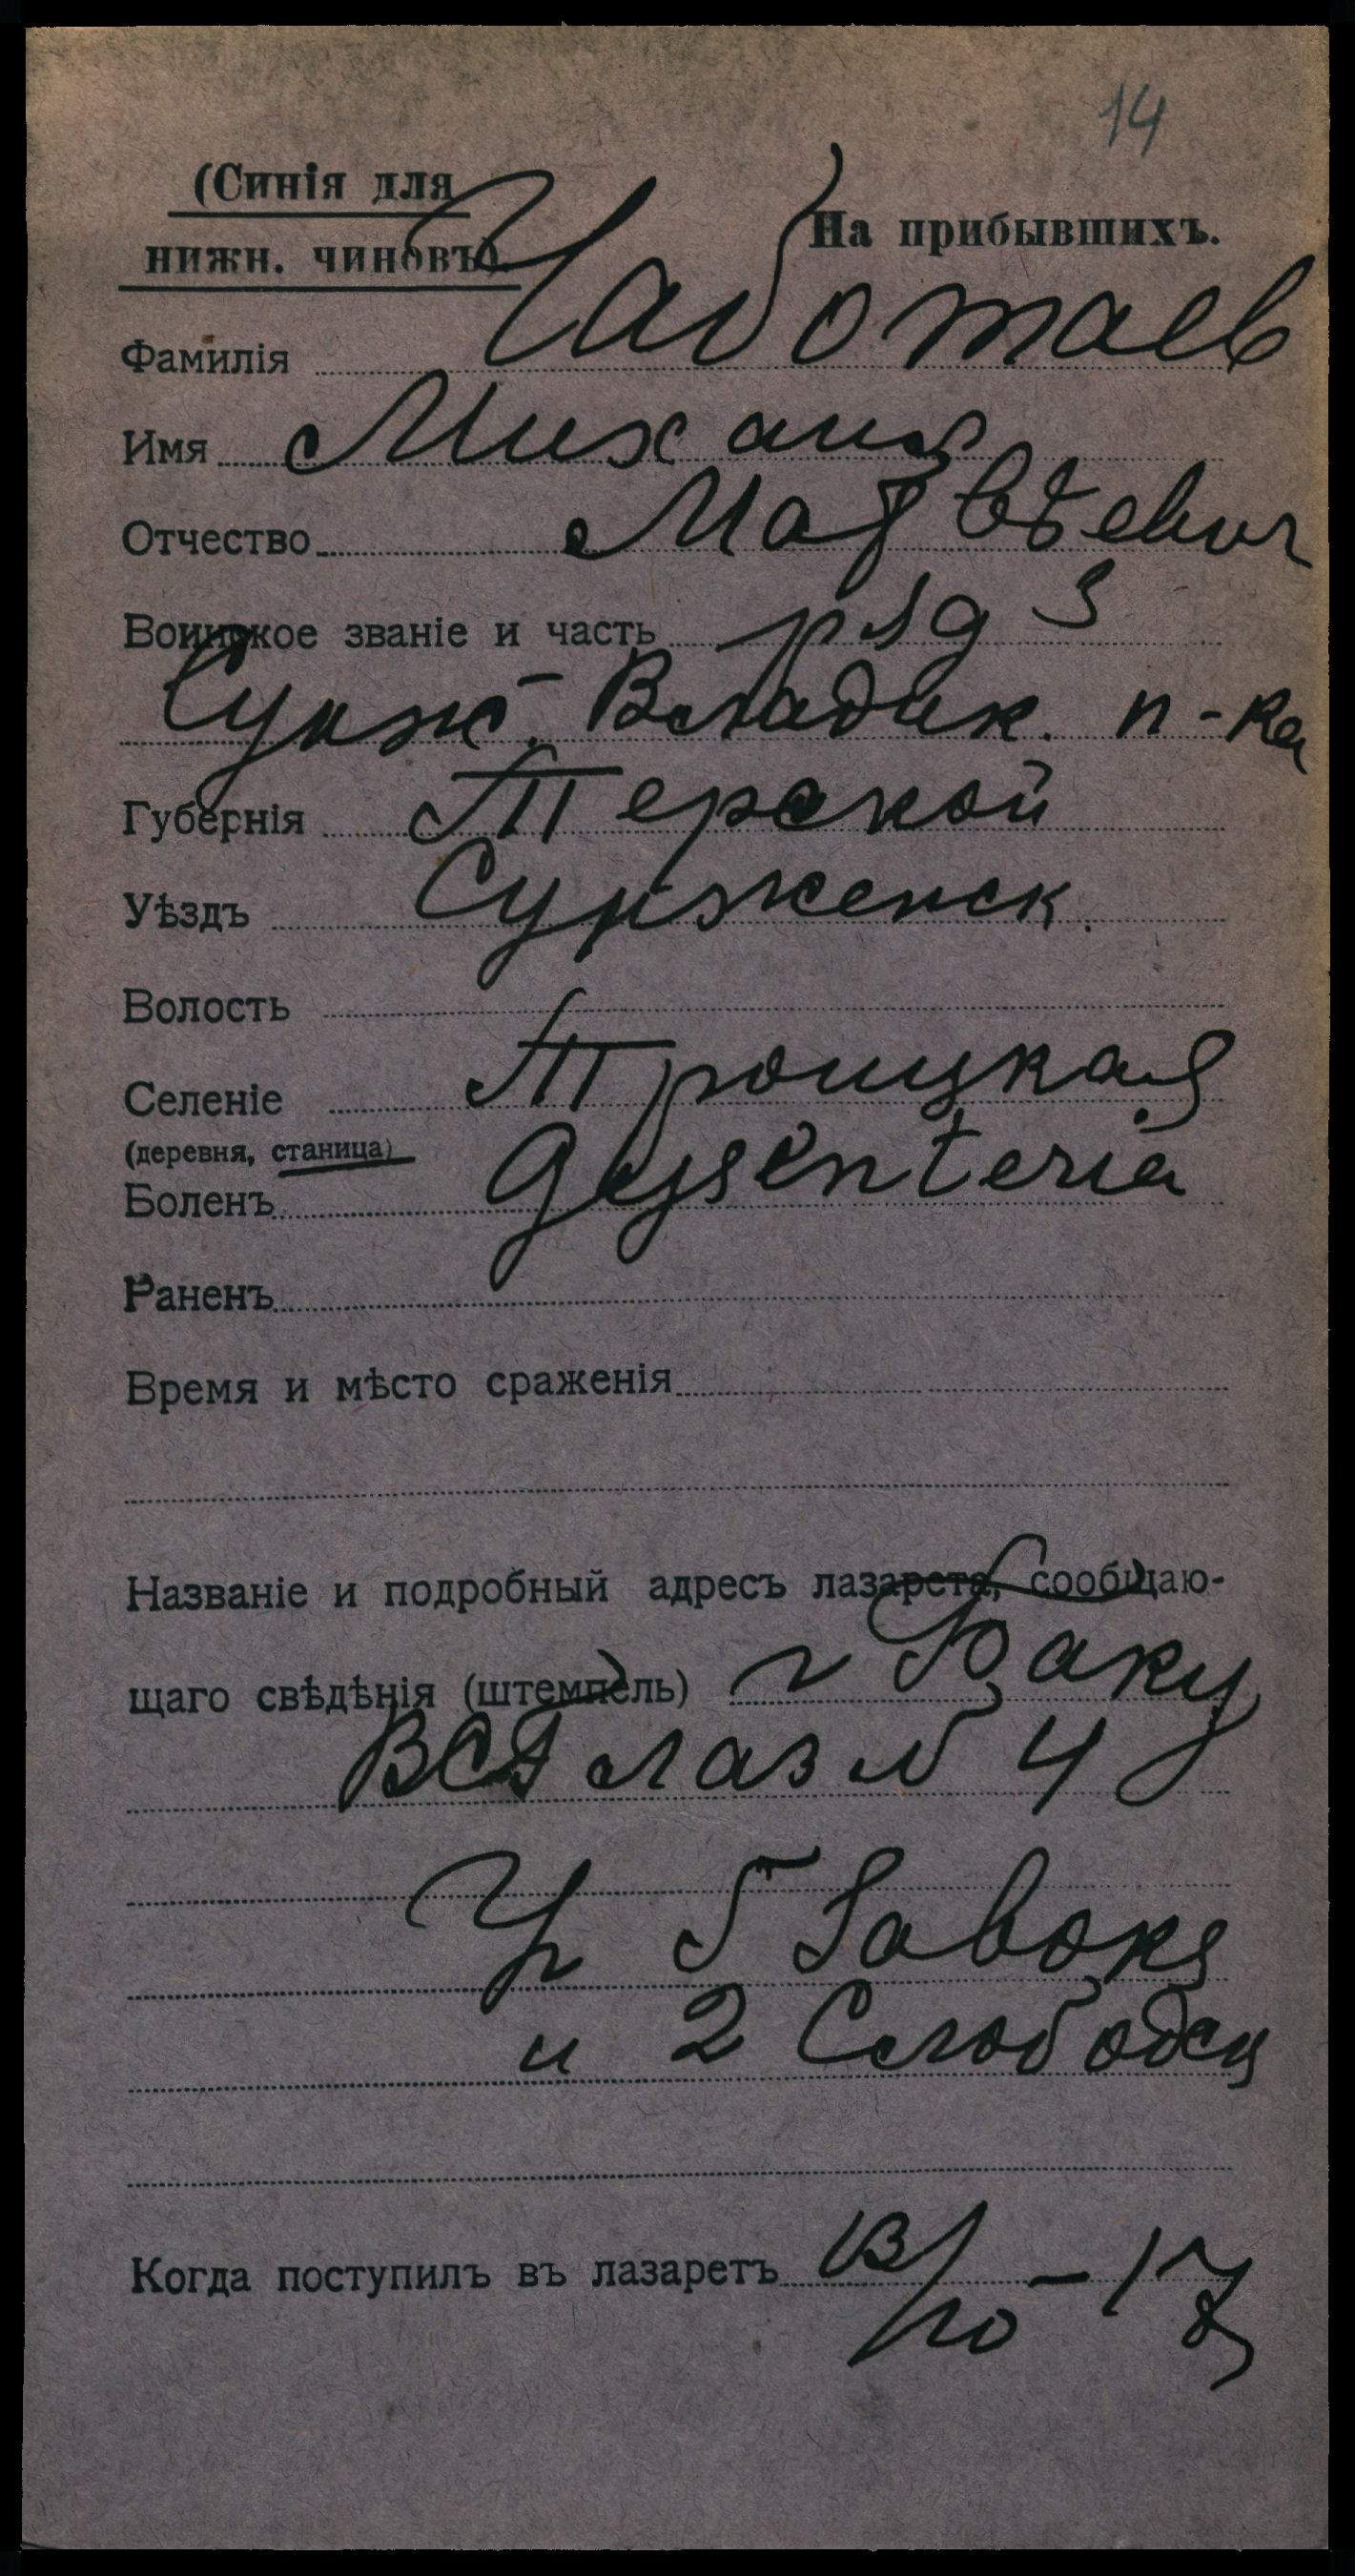 14
(Синія для
нижн. чиновъ).
На прибывшихъ.
Фамилія Чаботаев
Имя Михаил
Отчество Матвѣевич
Воинское званіе и часть ряд 3
Сунж. Владик. п-ка
Губернія Терской
Уѣздъ Сунженск.
Волость
Селеніе Троицкая
(деревня, станица)
Боленъ dysenteria
Раненъ
Время и мѣсто сраженія
Названіе и подробный адресъ лазарета, сообщаю-
щаго свѣдѣнія (штемпель) г Баку
ВСГ лаз № 4
Уг 5 Завокз
и 2 Слободск
Когда поступилъ въ лазаретъ 13/10 - 17